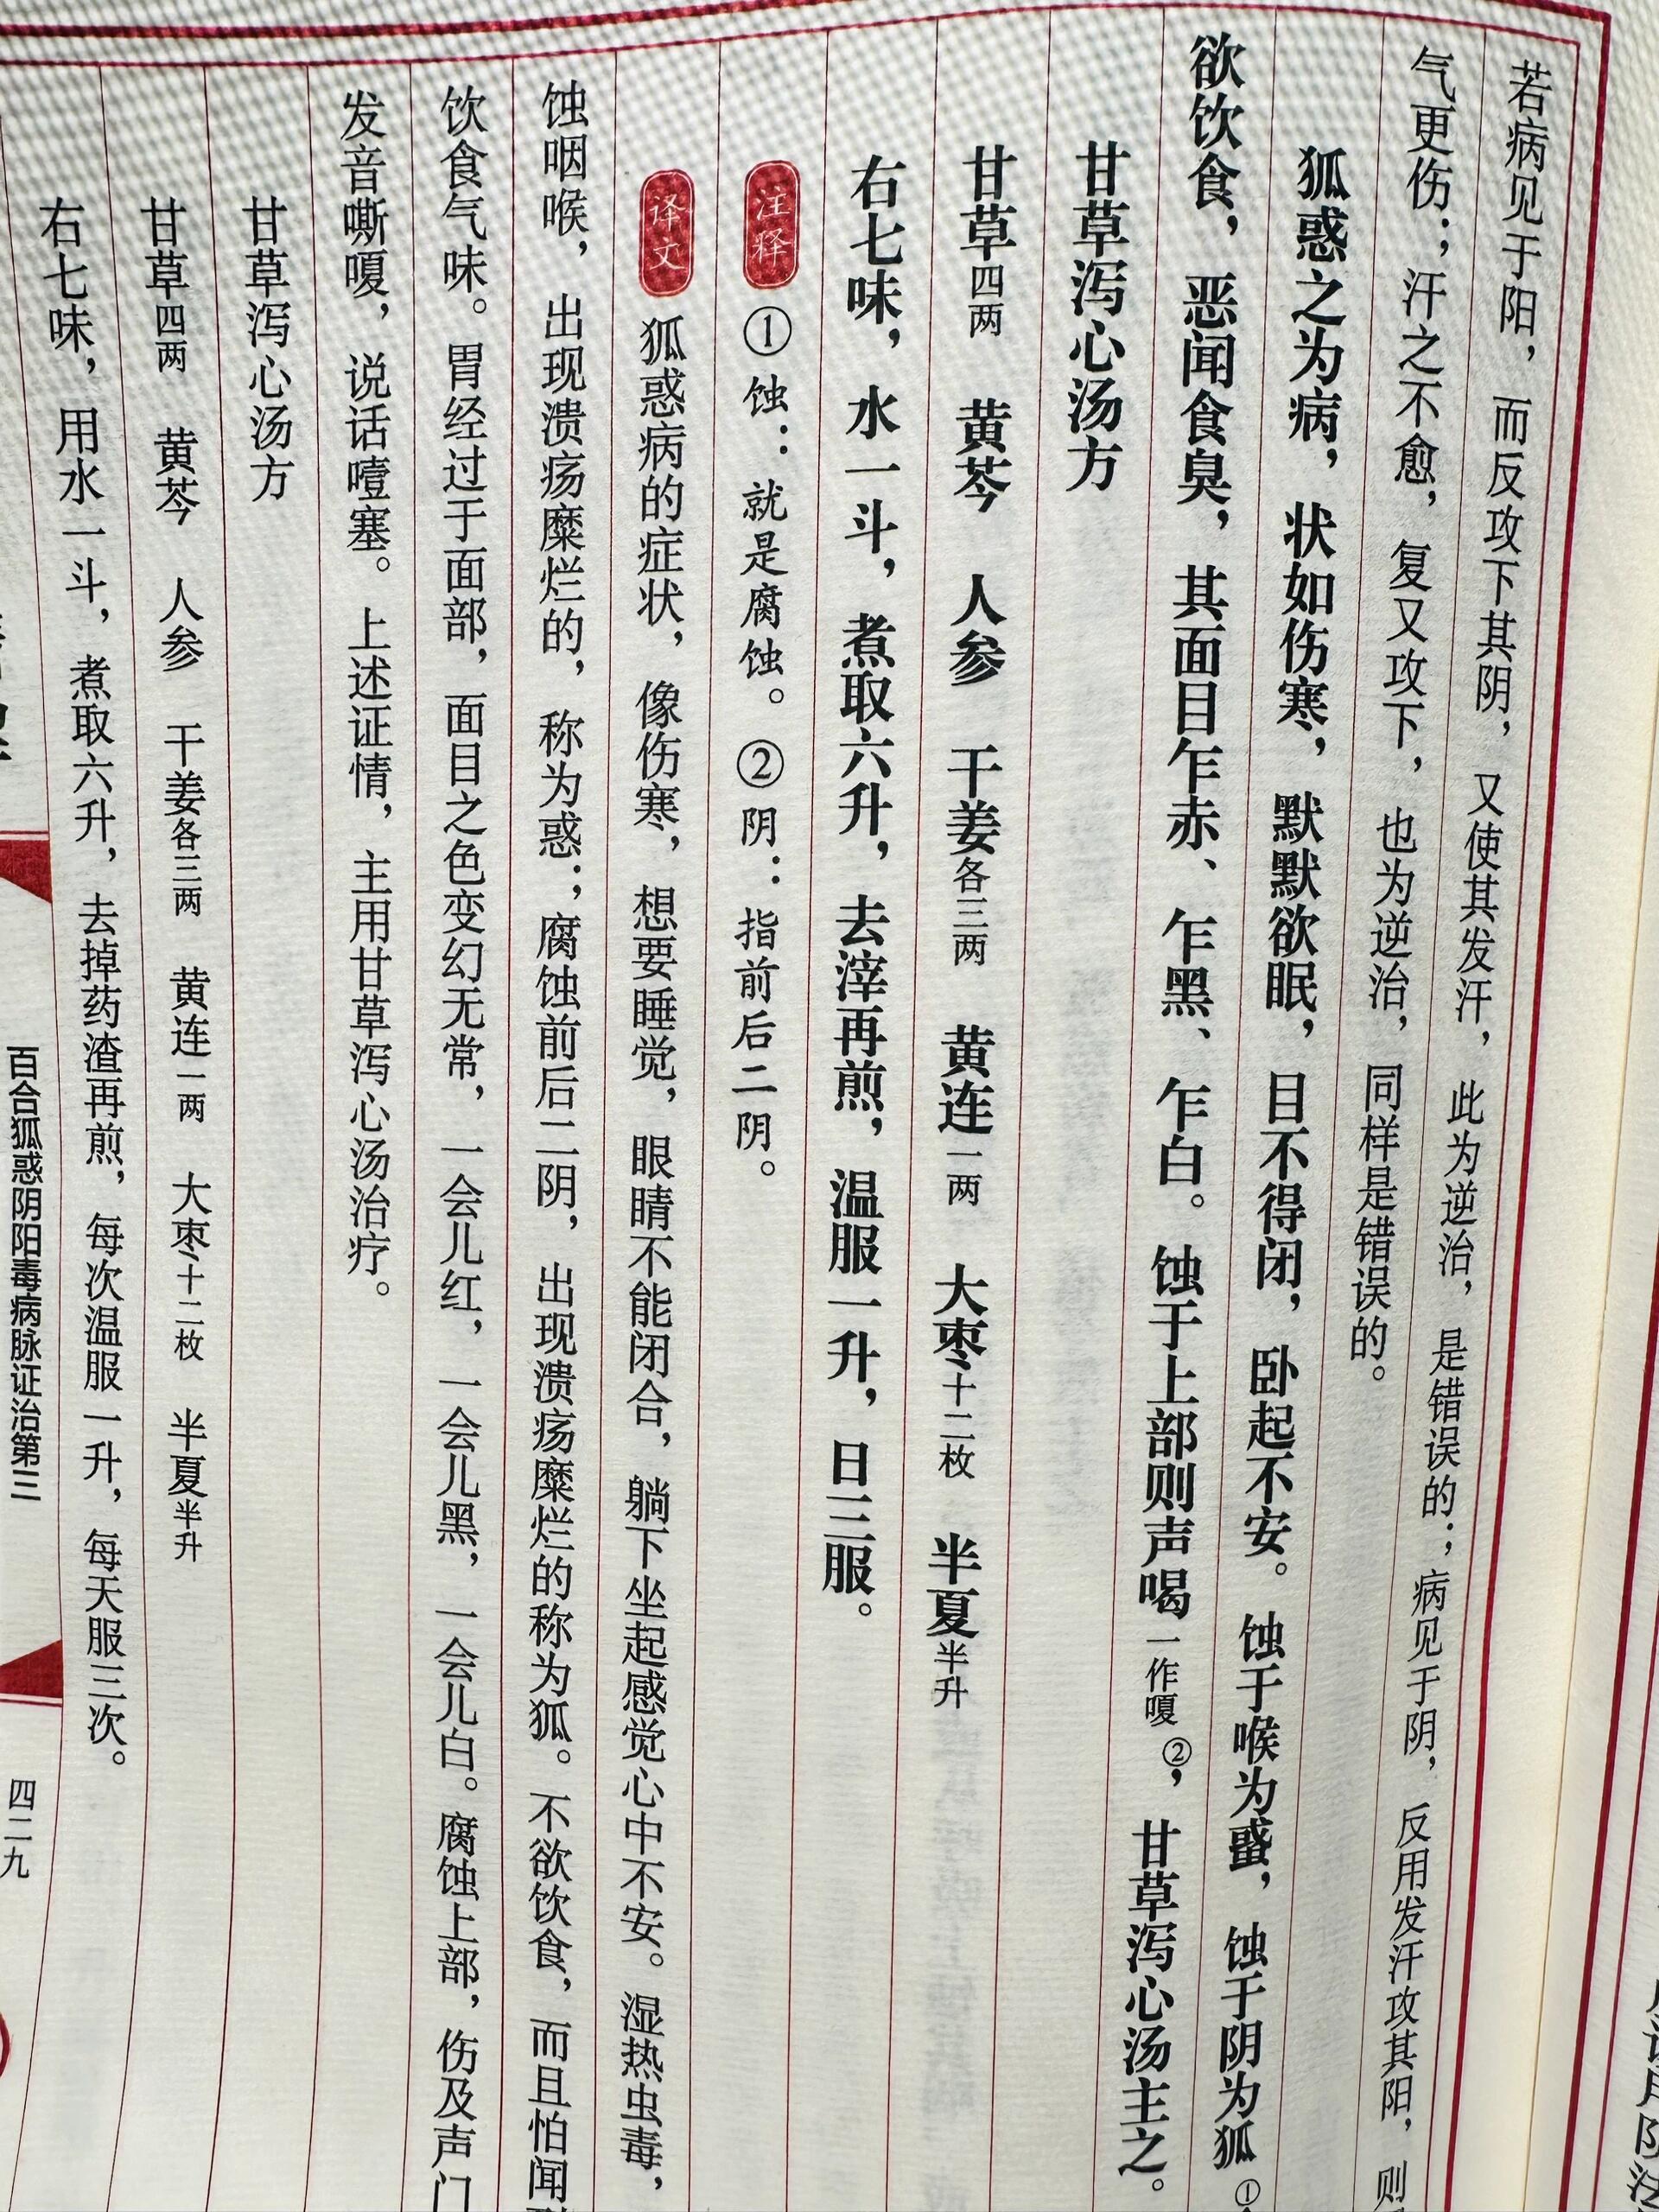 若病见于阳，而反攻下其阴，又使其发汗，此为逆治，是错误的；病见于阴，反用发汗攻其阳，则
气更伤；汗之不愈，复又攻下，也为逆治，同样是错误的。
狐惑之为病，状如伤寒，默默欲眠，目不得闭，卧起不安。蚀于喉为蜮，蚀于阴为狐①
欲饮食，恶闻食臭，其面目乍赤、乍黑、乍白。蚀于上部则声喝一作嗄②，甘草泻心汤主之。
甘草泻心汤方
甘草四两　黄芩　人参　干姜各三两　黄连一两　大枣十二枚　半夏半升
右七味，水一斗，煮取六升，去滓再煎，温服一升，日三服。
注释 ①蚀：就是腐蚀。②阴：指前后二阴。
译文 狐惑病的症状，像伤寒，想要睡觉，眼睛不能闭合，躺下坐起感觉心中不安。湿热虫毒，
蚀咽喉，出现溃疡糜烂的，称为惑；腐蚀前后二阴，出现溃疡糜烂的称为狐。不欲饮食，而且怕闻
饮食气味。胃经过于面部，面目之色变幻无常，一会儿红，一会儿黑，一会儿白。腐蚀上部，伤及声门
发音嘶嗄，说话噎塞。上述证情，主用甘草泻心汤治疗。
甘草泻心汤方
甘草四两　黄芩　人参　干姜各三两　黄连一两　大枣十二枚　半夏半升
右七味，用水一斗，煮取六升，去掉药渣再煎，每次温服一升，每天服三次。
百合狐惑阴阳毒病脉证治第三
四二九